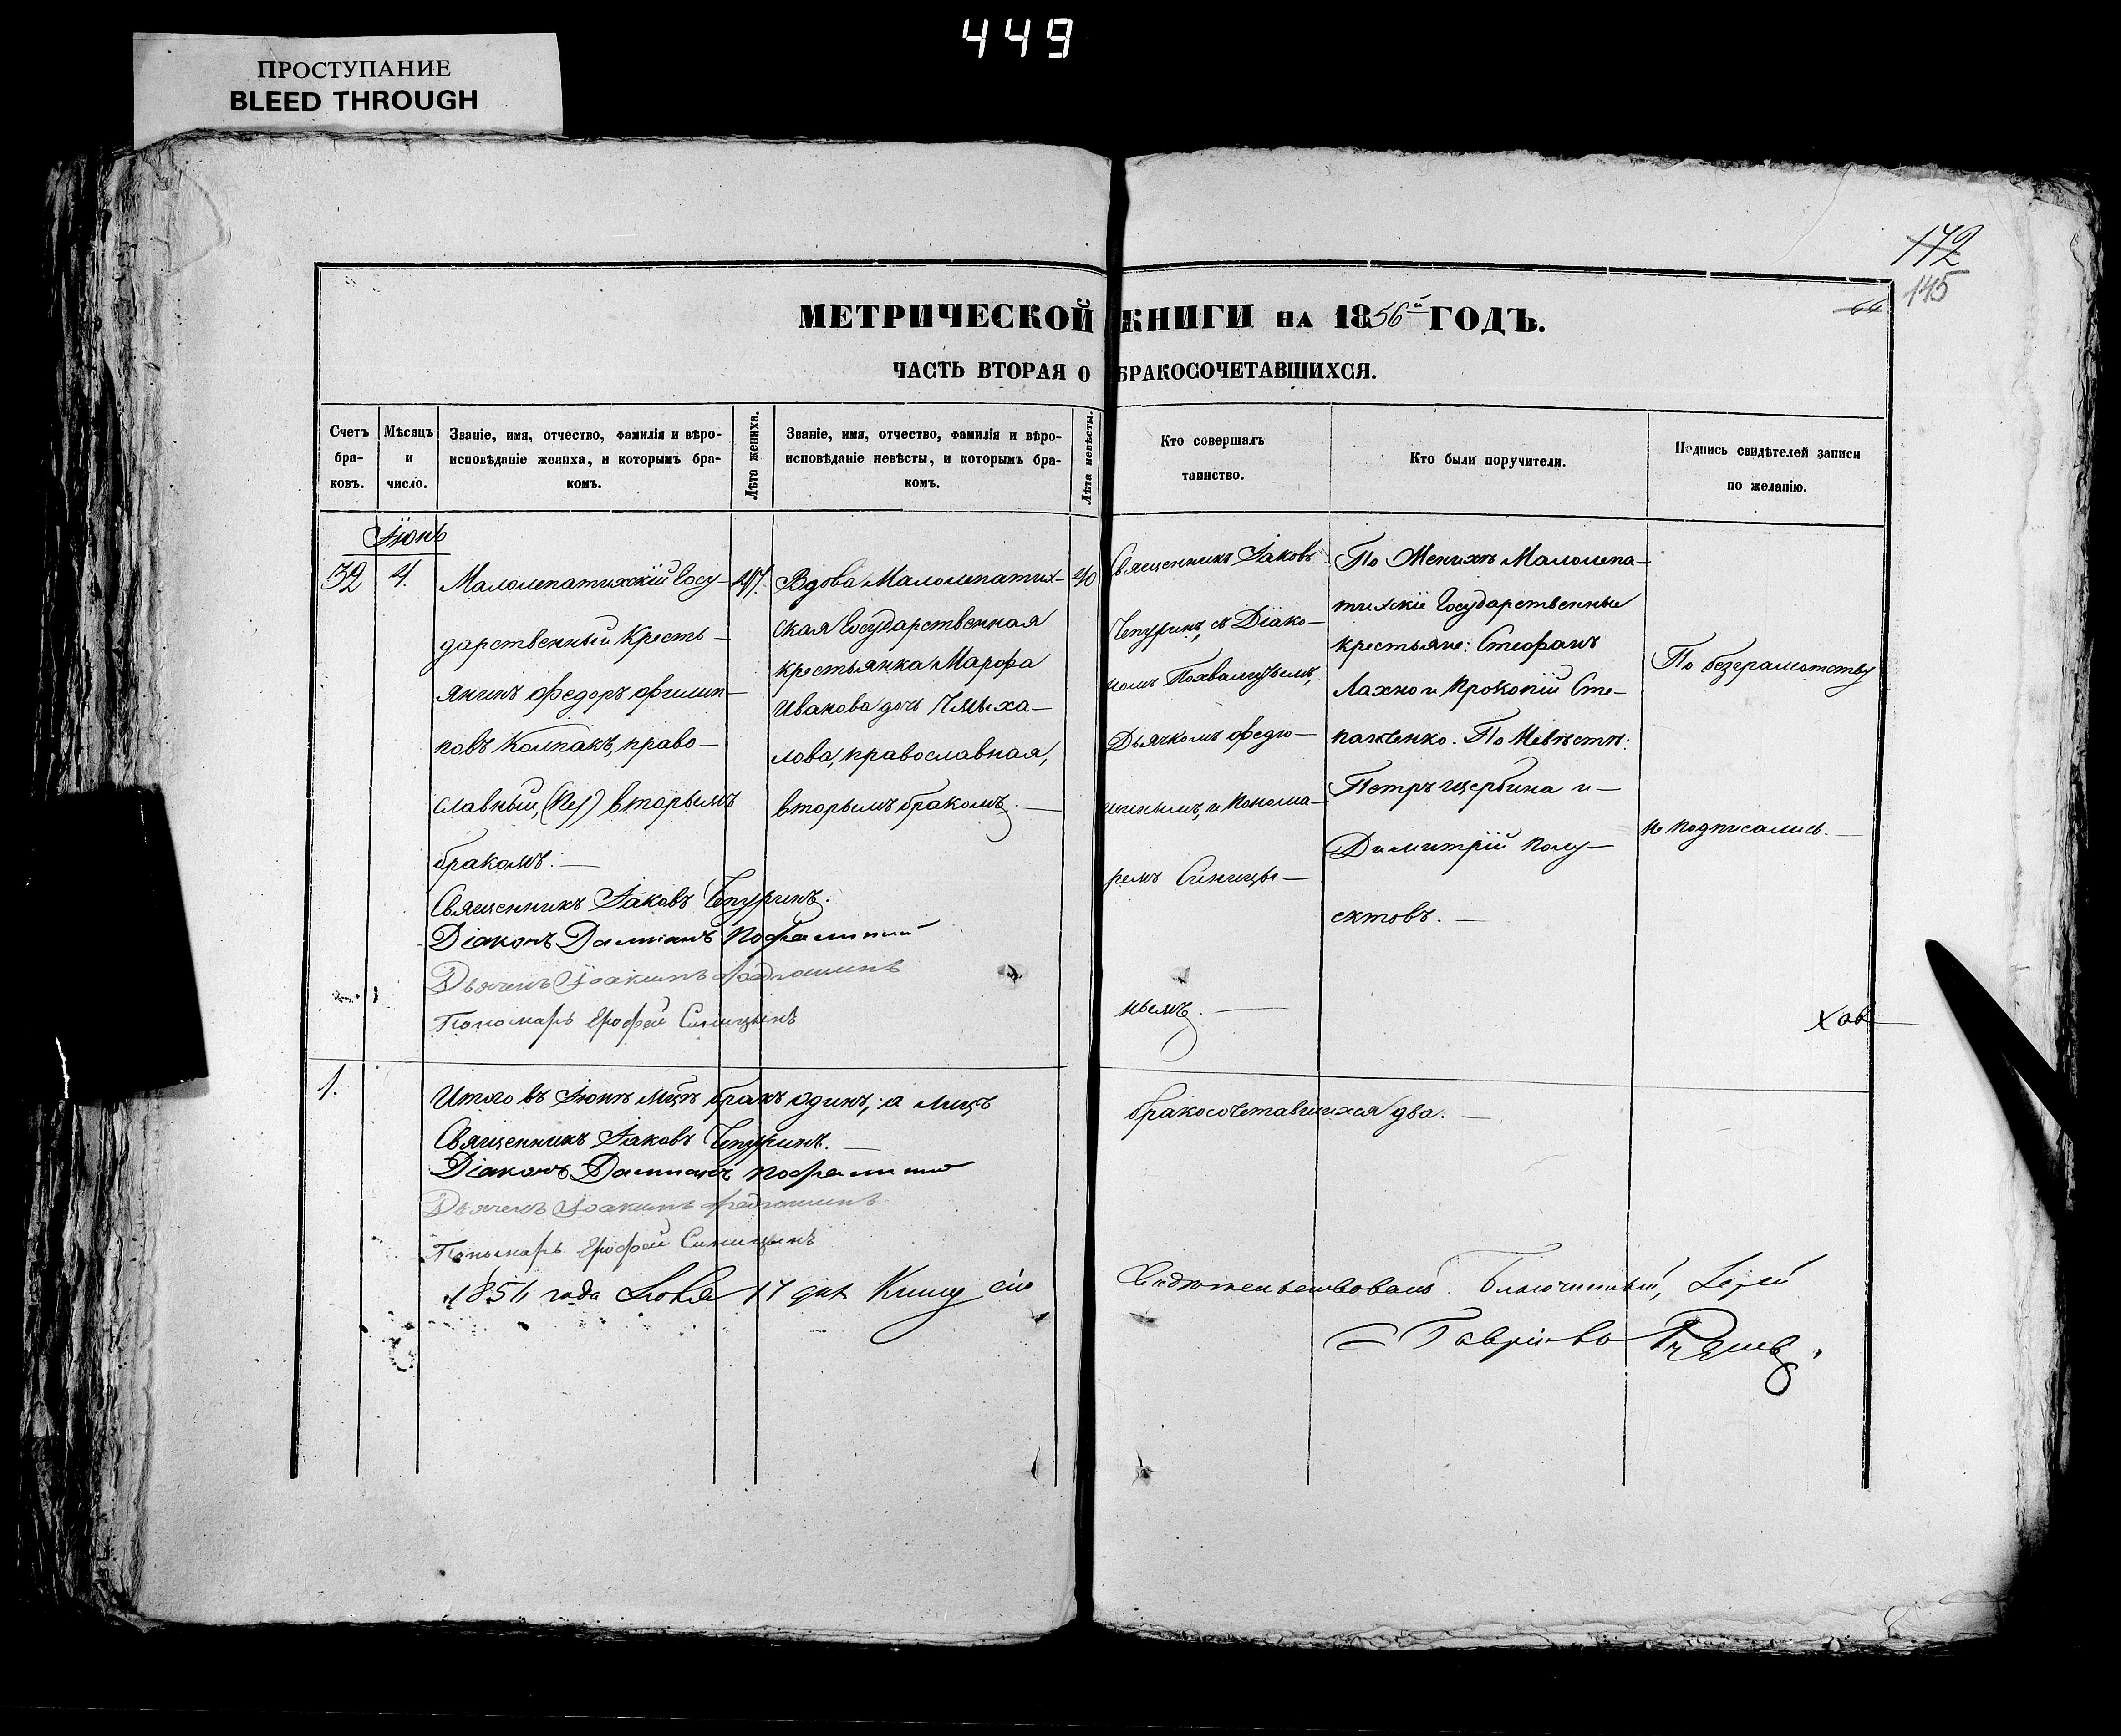 449
ПРОСТУПАНИЕ
BLEED THROUGH
172
145
64
МЕТРИЧЕСКОЙ КНИГИ НА 1856й ГОДЪ.
ЧАСТЬ ВТОРАЯ О БРАКОСОЧЕТАВШИХСЯ.
Счетъ бра-ковъ.
Мѣсяцъ и число.
Званіе, имя, отчество, фамилія и вѣро-
исповѣданіе жениха, и которымъ бра-
комъ.
Лѣта жениха.
Званіе, имя, отчество, фамилія и вѣро-
исповѣданіе невѣсты, и которымъ бра-
комъ.
Лѣта невѣсты.
Кто совершалъ
таинство.
Кто были поручители.
Подпись свидѣтелей записи
по желанію.
Іюнь
32
4.
Малолепатихскій Госу-
дарственный Кресть-
янинъ Федоръ Филип-
повъ Колпакъ, право-
славный, вторымъ
бракомъ.
47.
Вдова Малолепатих-
ская Государственная
крестьянка Марфа
Иванова дочь
лова, православная,
вторымъ бракомъ.
40
Священникъ Іаковъ
Чепуринъ, съ Діако-
номъ Похвалитымъ,
Дьячкомъ Федю-
шинымъ, и Понома-
ремъ Синицы-
нымъ.
По Женихѣ Малолепа-
тихскіе Государственные
крестьяне: Стефанъ
Лахно и Прокопій Сте-
паненко. По Невѣстѣ:
Петръ Щербина и
Димитрій Полу-
ектовъ.
По безграмотству
не подписались.
Священникъ Іаковъ Чепуринъ.
Діаконъ Даміанъ
Дьячекъ Іоакимъ Федюшинъ
Пономарь Ерофей Синицынъ
1.
Итого въ Іюнѣ мцѣ бракъ одинъ, а лицъ бракосочетавшихся два.
Священникъ Іаковъ Чепуринъ.
Діаконъ Даміанъ
Дьячекъ Іоакимъ Федюшинъ
Пономарь Ерофей Синицынъ
1856 года 17 дня Книгу сію свидѣтельствовалъ Благочинный, Іерей
Гавріилъ